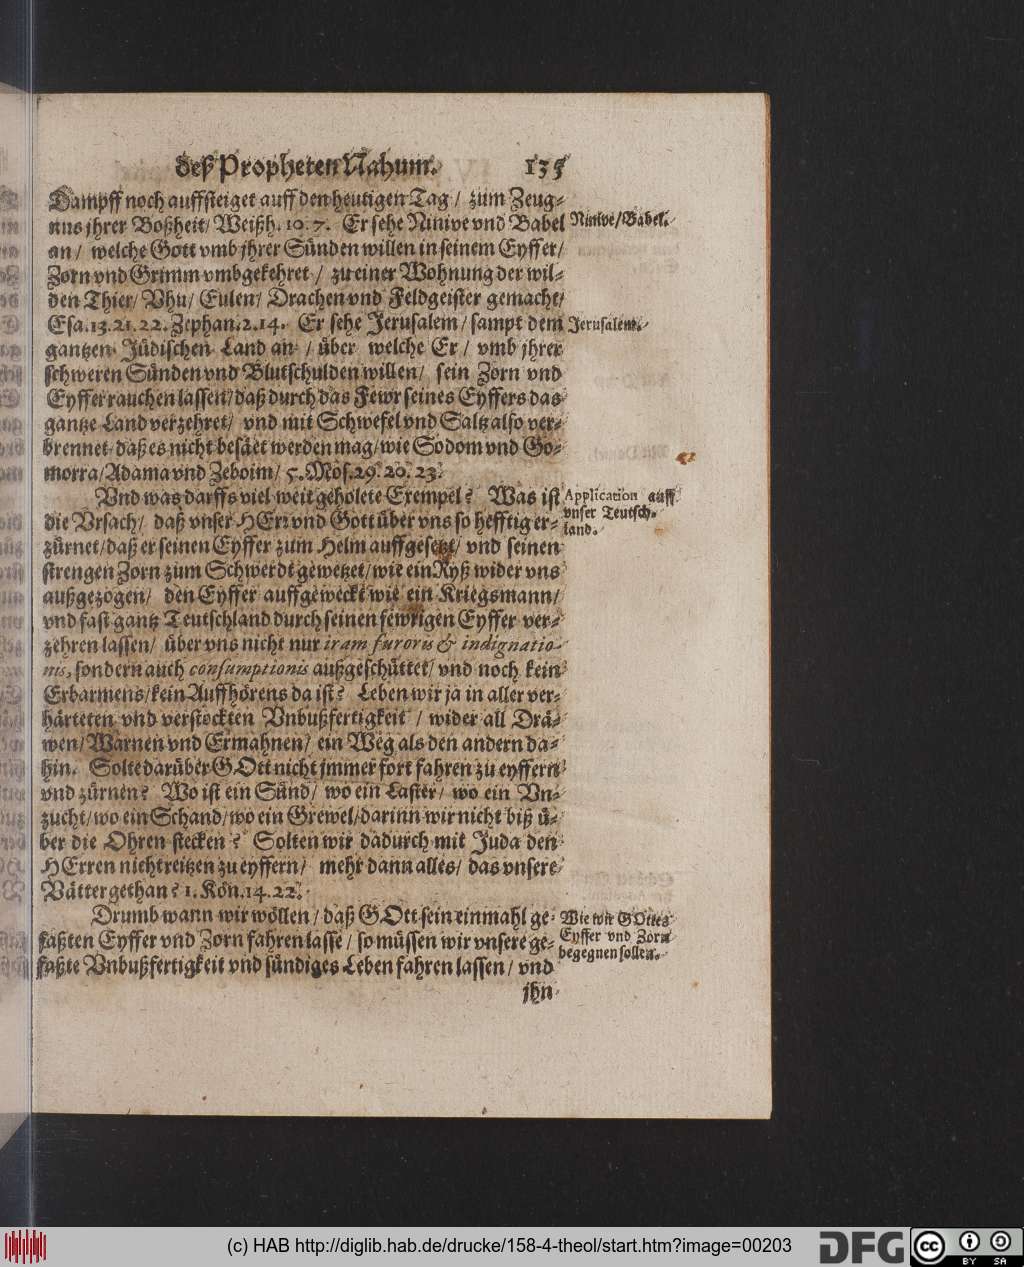 deß Propheten Nahum. 135
Dampff noch auffsteiget auff den heutigen Tag / zum Zeug-
nus jhrer Boßheit / Weißh. 10. 7. Er sehe Ninive vnd Babel
Ninive / Babel.
an / welche Gott vmb jhrer Sünden willen in seinem Eyffer /
Zorn vnd Grimm vmbgekehret / zu einer Wohnung der wil-
den Thier / Vhu / Eulen / Drachen vnd Feldgeister gemacht /
Esa. 13. 21. 22. Zephan. 2. 14. Er sehe Jerusalem / sampt dem
Jerusalem.
gantzen Jüdischen Land an / über welche Er / vmb jhrer
schweren Sünden vnd Blutschulden willen / sein Zorn vnd
Eyffer rauchen lassen / daß durch das Fewr seines Eyffers das
gantze Land verzehret / vnd mit Schwefel vnd Saltz also ver-
brennet daß es nicht besäet werden mag / wie Sodom vnd Go-
morra / Adama vnd Zeboim / 5. Mos. 29. 20. 23.
Vnd was darffs viel weit geholete Exempel? Was ist
Application auff
vnser Teutsch-
land.
die Vrsach / daß vnser HErr vnd Gott über vns so hefftig er-
zürnet / daß er seinen Eyffer zum Helm auffgesetzt / vnd seinen
strengen Zorn zum Schwerdt gewetzet / wie ein Ryß wider vns
außgezogen / den Eyffer auffgeweckt wie ein Kriegsmann /
vnd fast gantz Teutschland durch seinen fewrigen Eyffer ver-
zehren lassen / über vns nicht nur iram furoris & indignatio-
nis, sondern auch consumptionis außgeschüttet / vnd noch kein
Erbarmens / kein Auffhörens da ist? Leben wir ja in aller ver-
härteten vnd verstockten Vnbußfertigkeit / wider all Drä-
wen / Warnen vnd Ermahnen / ein Weg als den andern da-
hin. Solte darüber GOtt nicht jmmer fort fahren zu eyffern
vnd zürnen? Wo ist ein Sünd / wo ein Laster / wo ein Vn-
zucht / wo ein Schand / wo ein Grewel / darinn wir nicht biß ü-
ber die Ohren stecken? Solten wir dadurch mit Juda den
HErren nicht reitzen zu eyffern / mehr dann alles / das vnsere
Vätter gethan? 1. Kön. 14. 22.
Drumb wann wir wöllen / daß GOtt sein einmahl ge-
Wie wir GOttes
Eyffer vnd Zorn
begegnen sollen.
faßten Eyffer vnd Zorn fahren lasse / so müssen wir vnsere ge-
faßte Vnbußfertigkeit vnd sündiges Leben fahren lassen / vnd
jhn
(c) HAB http://diglib.hab.de/drucke/158-4-theol/start.htm?image=00203
DFG
cc BY SA